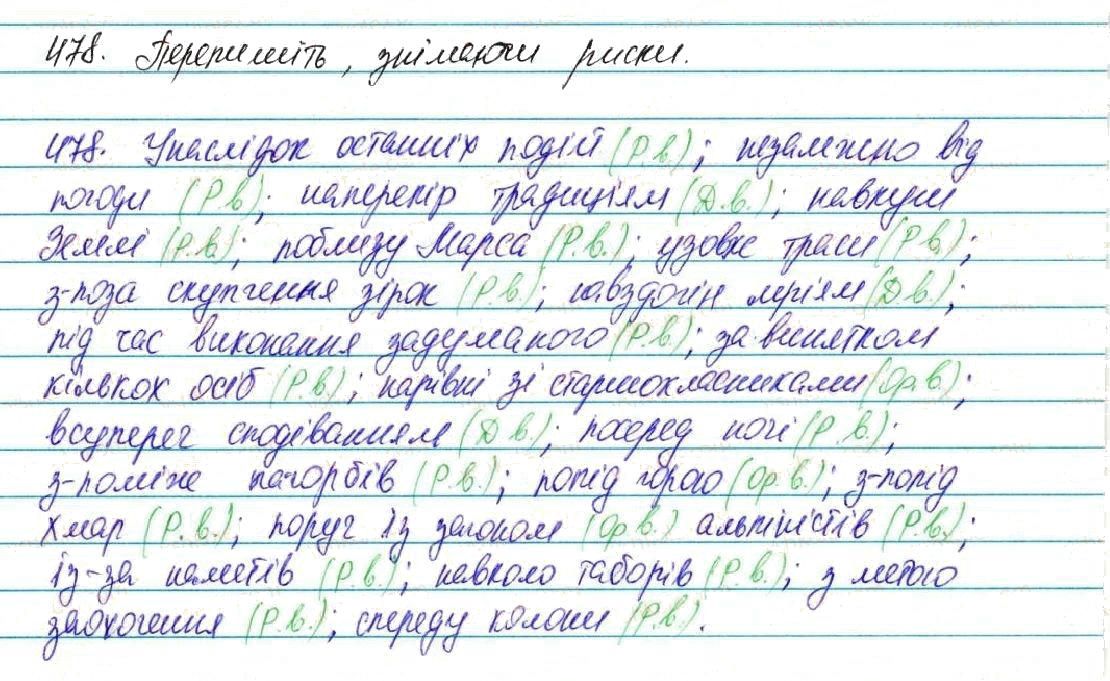 478. Перепишіть, знімаючи риски.
478. Унаслідок останніх подій (Р.в.); незалежно від
погоди (Р.в); наперекір традиціям (Д.в.); навкруги
Землі (Р.в.); поблизу Марса (Р.в.); узовж траси (Р.в.);
з-поза скупчення зірок (Р.в.); навздогін мріям (Д.в.);
під час виконання задуманого (Р.в.); за винятком
кількох осіб (Р.в.); нарівні зі старшокласниками (Ор.в.);
всупереч сподіванням (Д.в.); посеред ночі (Р.в.);
з-поміж пагорбів (Р.в.); попід горою (Ор.в.); з-попід
хмар (Р.в.); поруч із загоном (Ор.в.) альпіністів (Р.в.);
із-за наметів (Р.в.); навколо таборів (Р.в.); з метою
заохочення (Р.в.); спереду колони (Р.в.).